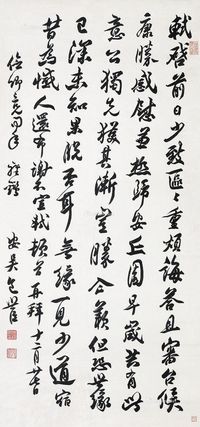 軾啓前日少致區區重煩誨答且審台候
康勝感慰兼極歸安丘園早歲共有此
意公獨先獲其漸豈勝企羨但恐世緣
已深未知果脫否耳無緣一見少道宿
昔為恨人還布謝不宣軾頓首再拜十二月廿
雅鑒
安吳包世臣